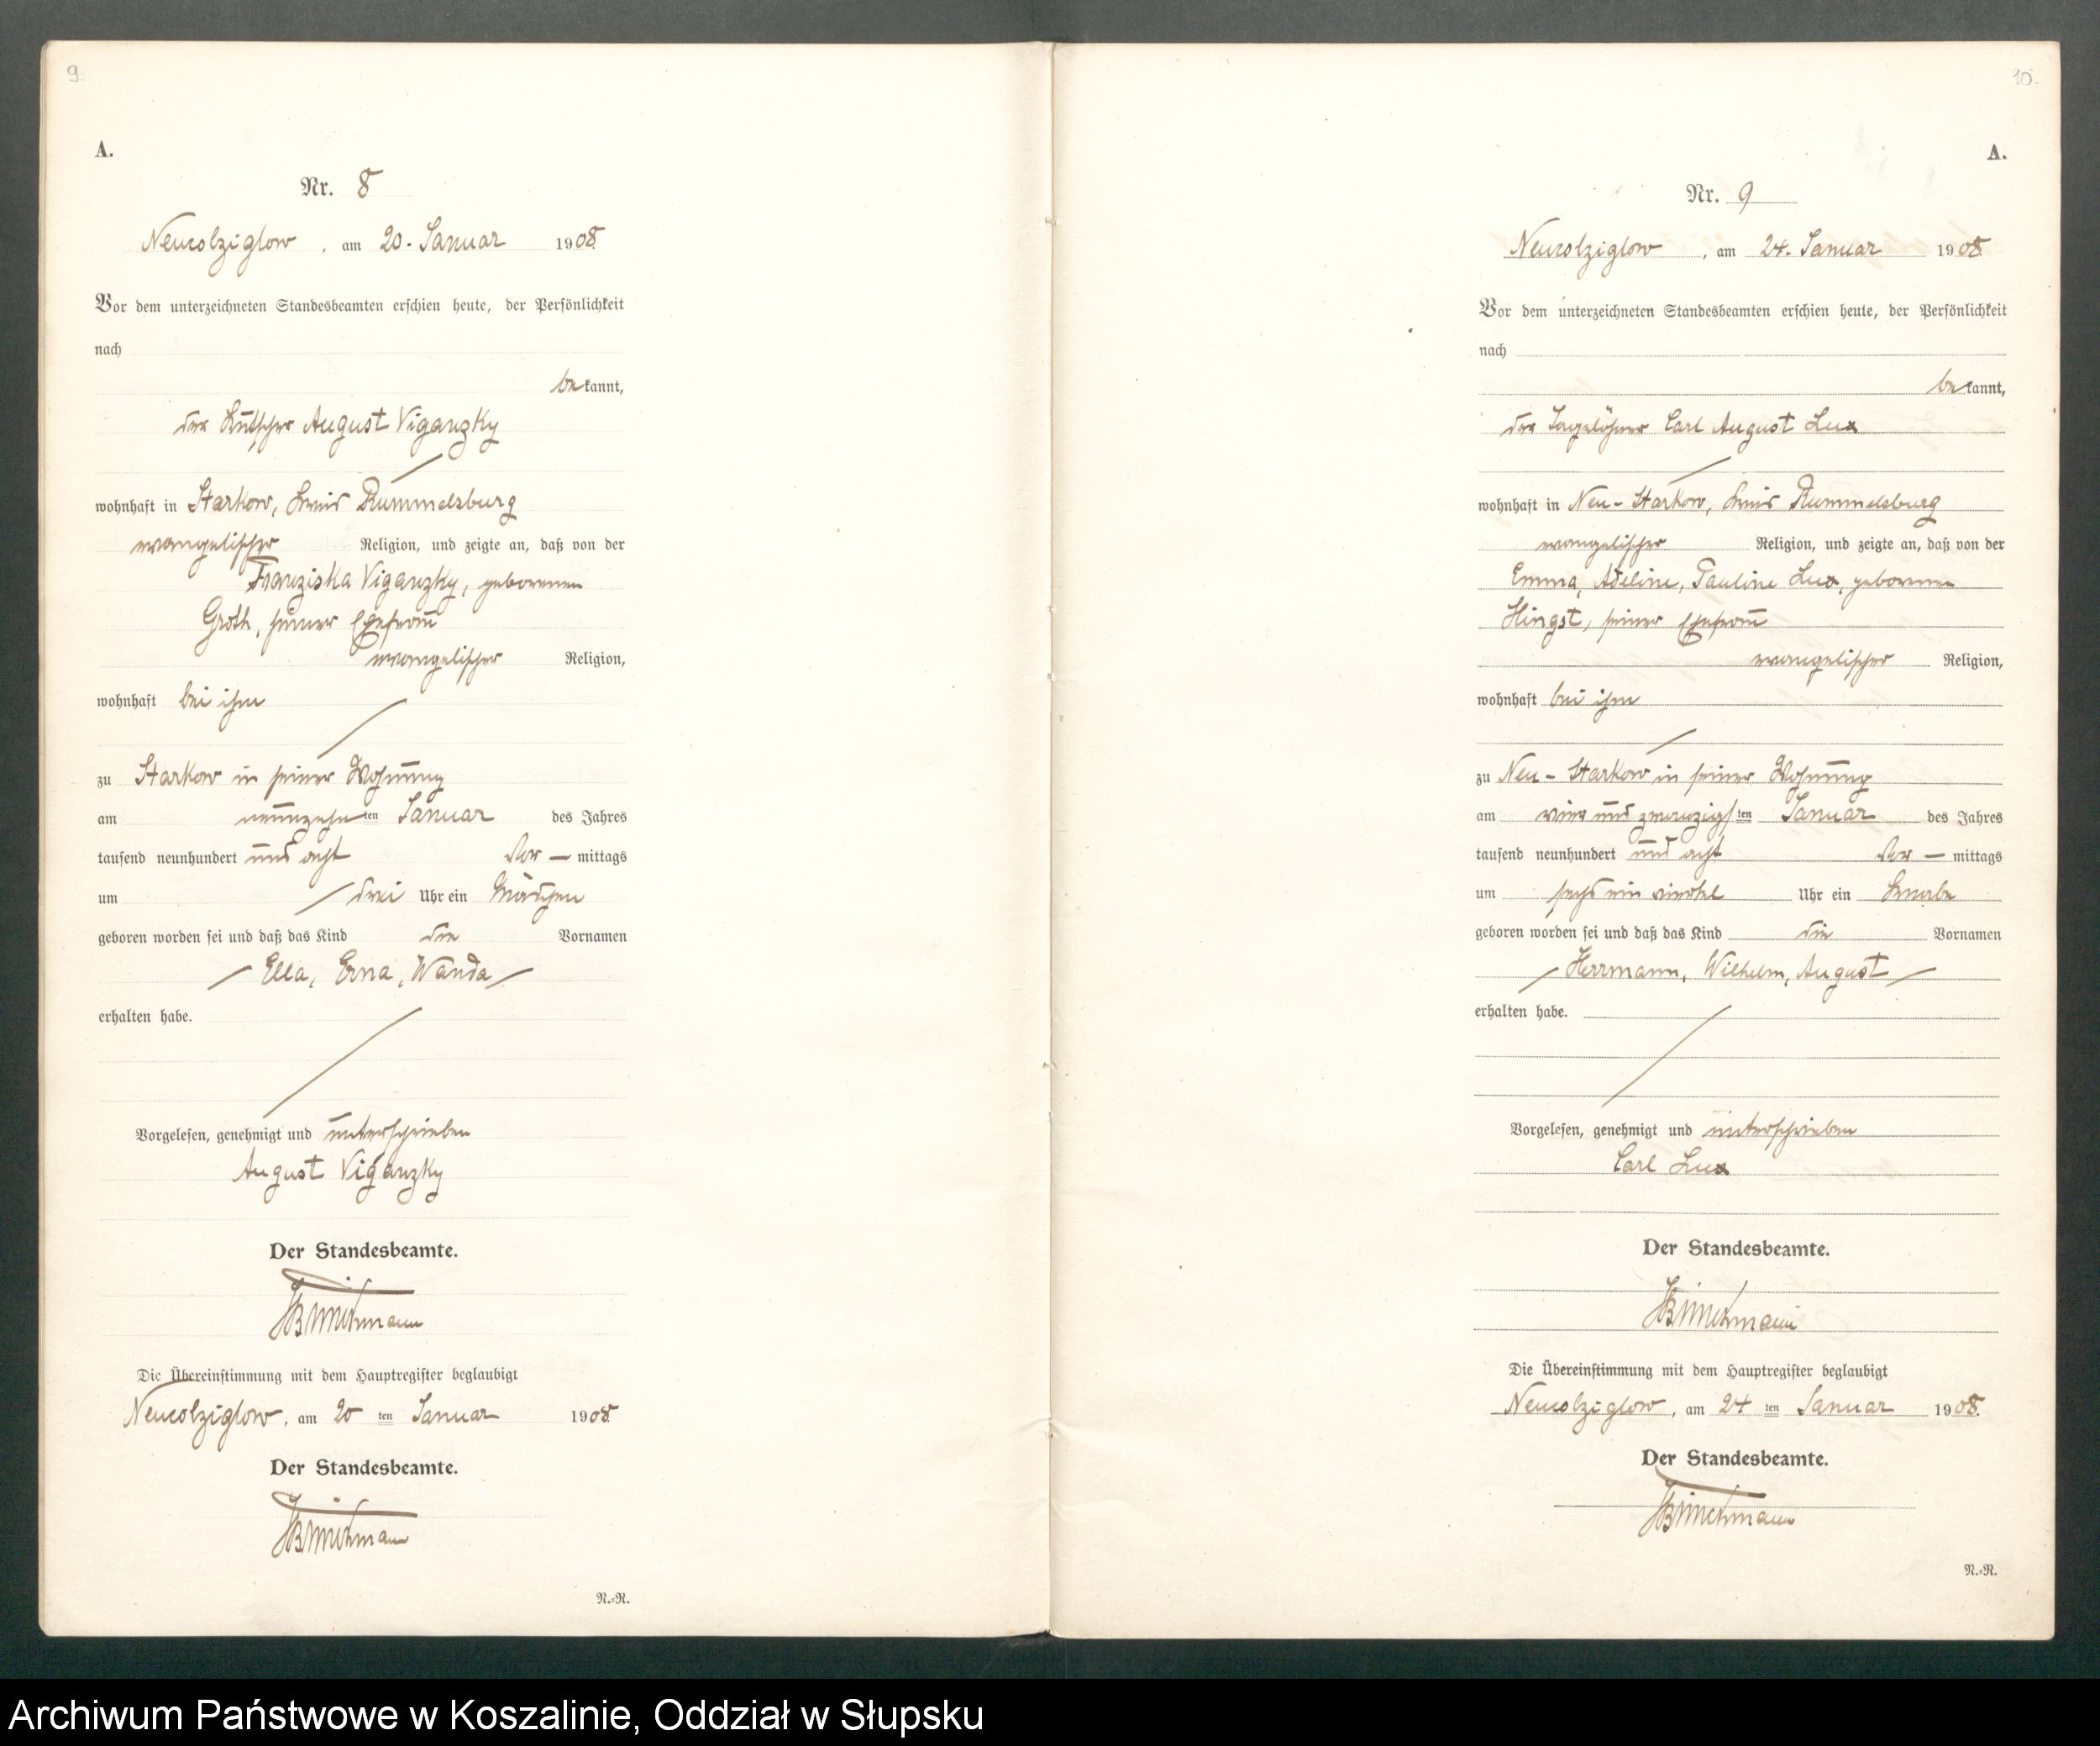 9.
A.
Nr. 8
Neukolziglow, am 20. Januar 1908.
Vor dem unterzeichneten Standesbeamten erschien heute, der Persönlichkeit
nach
bekannt,
der Kutscher August Viganzky
wohnhaft in Starkow, Kreis Rummelsburg
evangelischer Religion, und zeigte an, daß von der
Franziska Viganzky, geborenen
Groth, seiner Ehefrau
evangelischer Religion,
wohnhaft bei ihm
zu Starkow in seiner Wohnung
am neunzehnten Januar des Jahres
tausend neunhundert und acht Vor — mittags
um drei Uhr ein Mädchen
geboren worden sei und daß das Kind die Vornamen
Ella, Erna, Wanda
erhalten habe.
Vorgelesen, genehmigt und unterschrieben
August Viganzky
Der Standesbeamte.
Die Übereinstimmung mit dem Hauptregister beglaubigt
Neukolziglow, am 20 ten Januar 1908.
Der Standesbeamte.
N.=R.
10.
A.
Nr. 9
Neukolziglow, am 24. Januar 1908.
Vor dem unterzeichneten Standesbeamten erschien heute, der Persönlichkeit
nach
bekannt,
der Tagelöhner Carl August Lux
wohnhaft in Neu-Starkow, Kreis Rummelsburg
evangelischer Religion, und zeigte an, daß von der
Emma, Adeline, Pauline Lux, geborenen
Hingst, seiner Ehefrau
evangelischer Religion,
wohnhaft bei ihm
zu Neu-Starkow in seiner Wohnung
am vier und zwanzigsten Januar des Jahres
tausend neunhundert und acht Vor — mittags
um sechs ein viertel Uhr ein Knabe
geboren worden sei und daß das Kind die Vornamen
Herrmann, Wilhelm, August
erhalten habe.
Vorgelesen, genehmigt und unterschrieben
Carl Lux
Der Standesbeamte.
Die Übereinstimmung mit dem Hauptregister beglaubigt
Neukolziglow, am 24 ten Januar 1908.
Der Standesbeamte.
N.=R.
Archiwum Państwowe w Koszalinie, Oddział w Słupsku